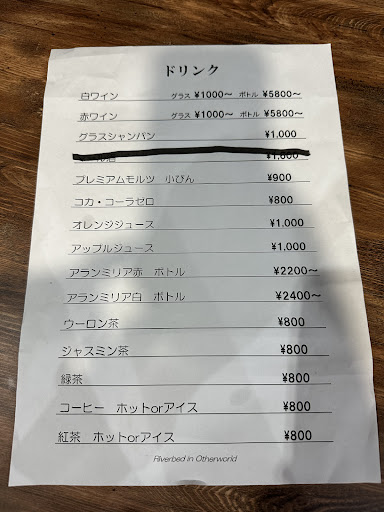 ドリンク
白ワイン グラス ¥1000〜 ボトル ¥5800〜
赤ワイン グラス ¥1000〜 ボトル ¥5800〜
グラスシャンパン ¥1,000
¥1,600
プレミアムモルツ 小びん ¥900
コカ・コーラゼロ ¥800
オレンジジュース ¥1,000
アップルジュース ¥1,000
アランミリア赤 ボトル ¥2200〜
アランミリア白 ボトル ¥2400〜
ウーロン茶 ¥800
ジャスミン茶 ¥800
緑茶 ¥800
コーヒー ホットorアイス ¥800
紅茶 ホットorアイス ¥800
Riverbed in Otherworld